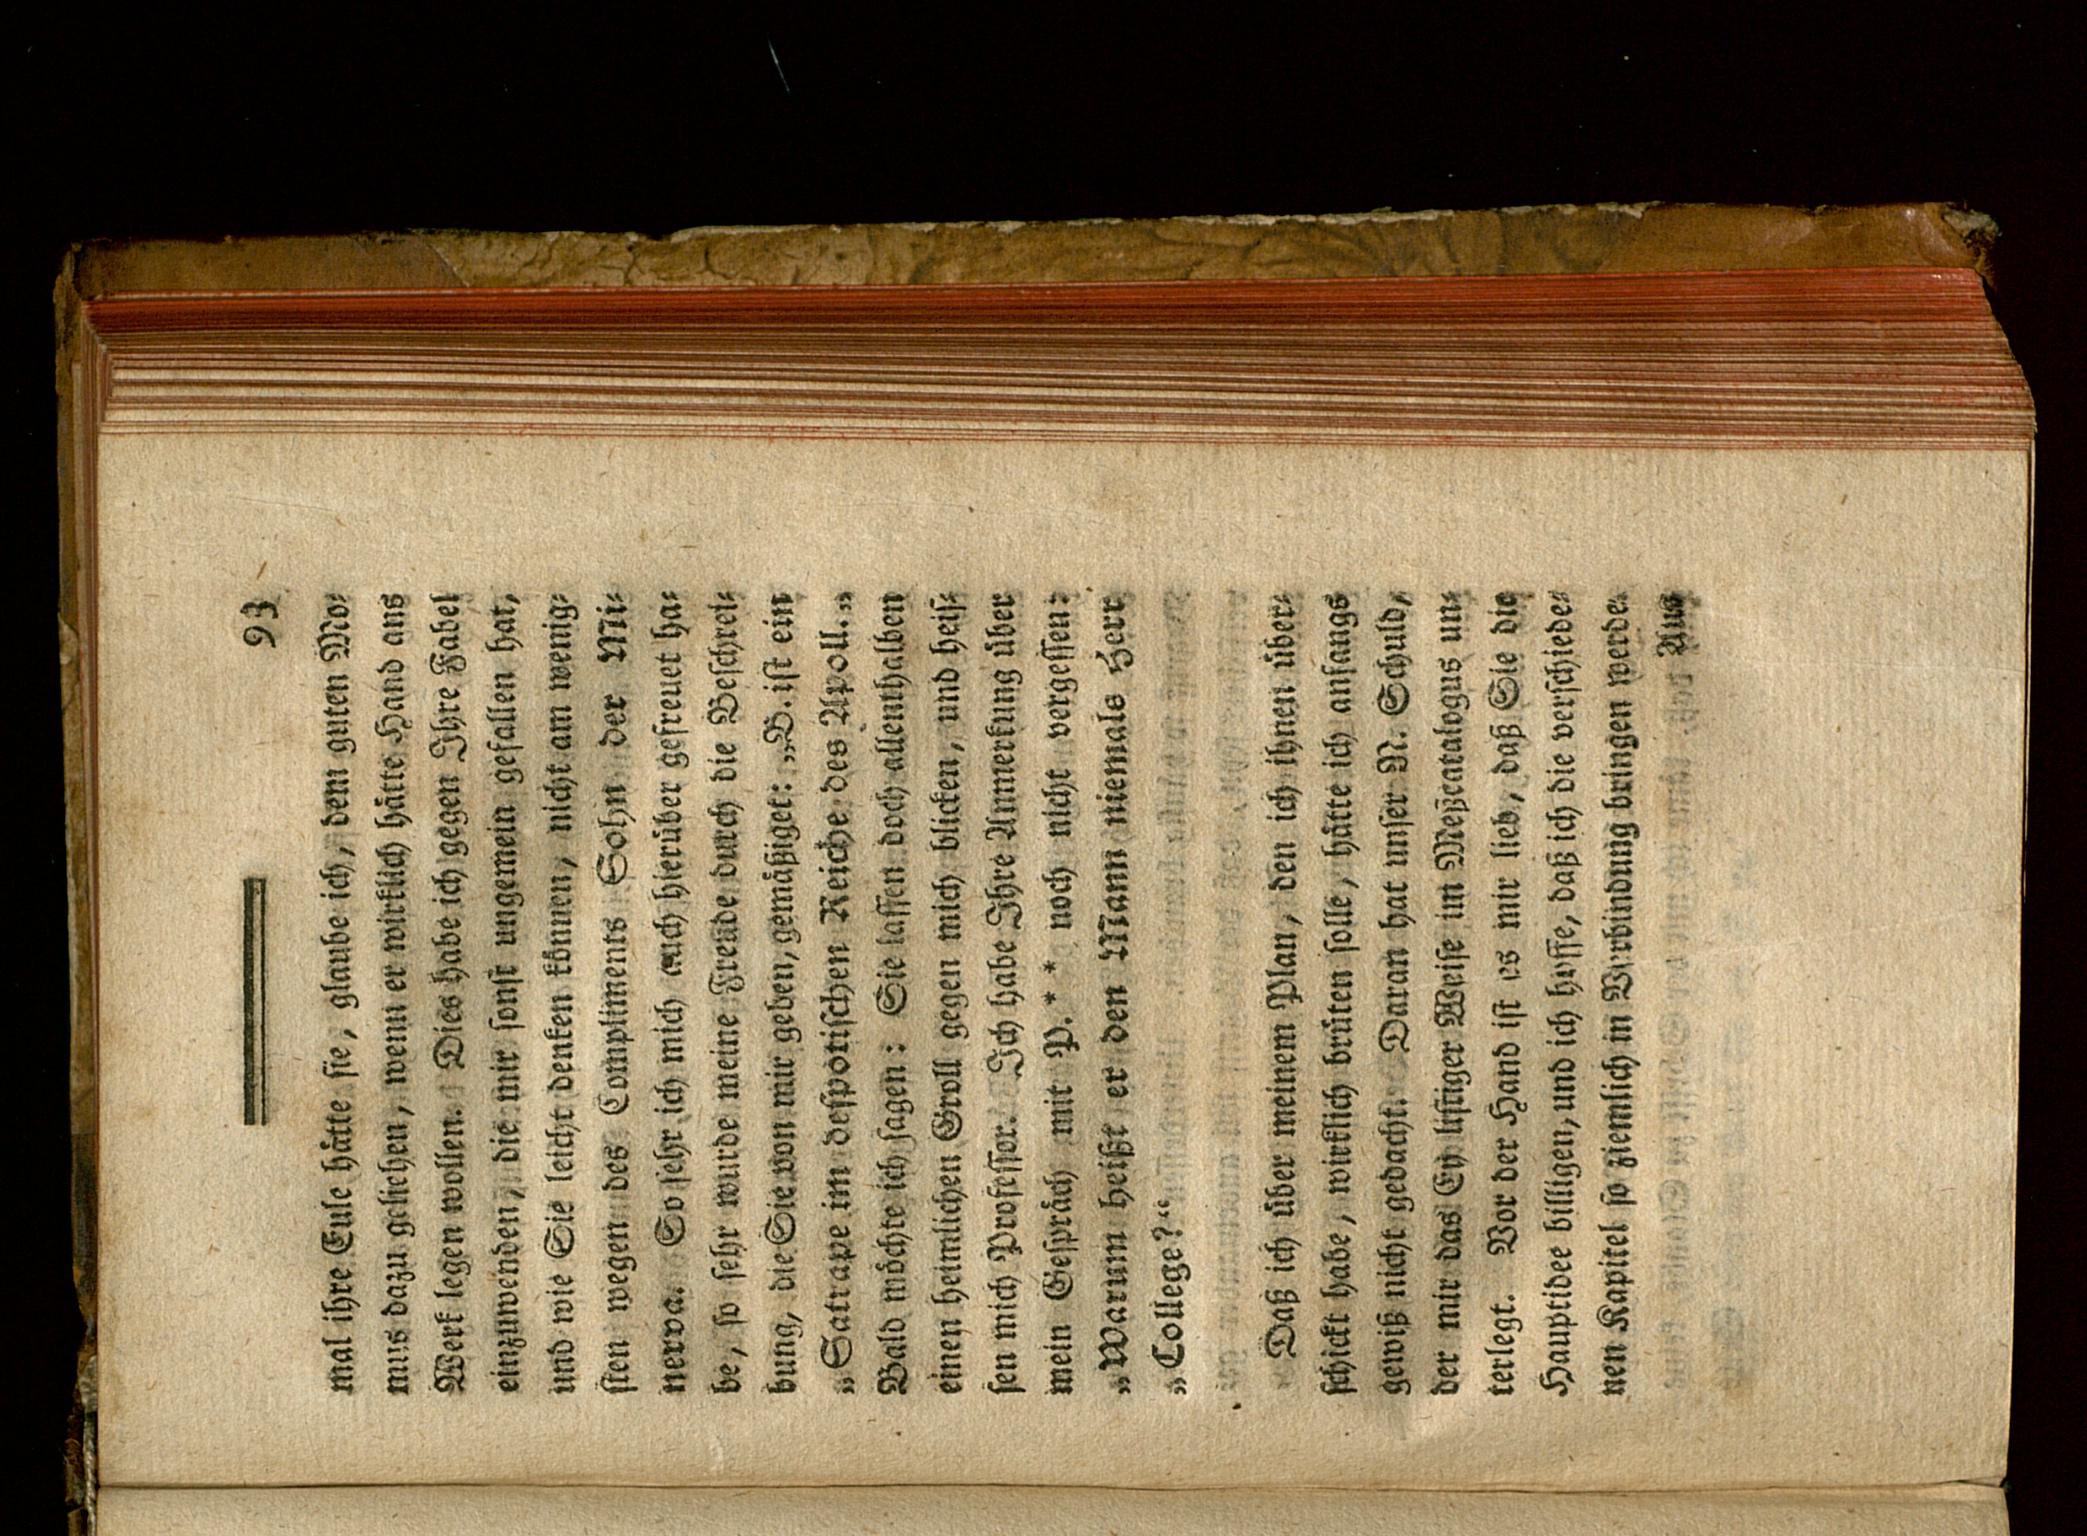 93
mal ihre Eule hätte ſie, glaube ich, dem guten Mo⸗
mus dazu geliehen, wenn er wirklich hätte Hand ans
Werk legen wollen. Dies habe ich gegen Ihre Fabel
einzuwenden, die mir ſonſt ungemein gefallen hat,
und wie Sie leicht denken können, nicht am wenig⸗
ſten wegen des Compliments Sohn der Mi⸗
nerva. So ſehr ich mich auch hierüber gefreuet ha⸗
be, ſo ſehr wurde meine Freude durch die Beſchrei⸗
bung, die Sie von mir geben, gemäßiget: „B. iſt ein
„Satrape im deſpotiſchen Reiche des Apoll.„
Bald möchte ich ſagen: Sie laſſen doch allenthalben
einen heimlichen Groll gegen mich blicken, und heiſ⸗
ſen mich Profeſſor. Ich habe Ihre Anmerkung über
mein Geſpräch mit P.** noch nicht vergeſſen:
„Warum heißt er den Mann niemals Herr
„College?“
Daß ich über meinem Plan, den ich ihnen über⸗
ſchickt habe, wirklich brüten ſolle, hätte ich anfangs
gewiß nicht gedacht. Daran hat unſer N. Schuld,
der mir das Ey liſtiger Weiſe im Meßcatalogus un⸗
terlegt. Vor der Hand iſt es mir lieb, daß Sie die
Hauptidee billigen, und ich hoffe, daß ich die verſchiede⸗
nen Kapitel ſo ziemlich in Verbindung bringen werde.
Aus